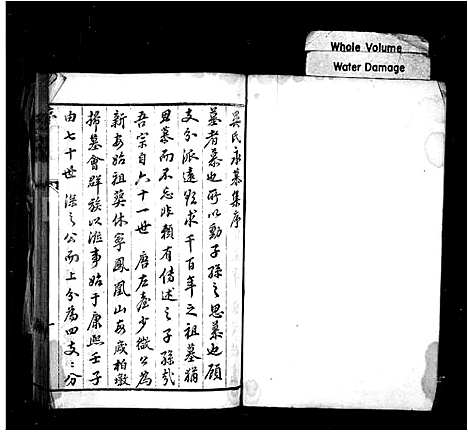 Whole Volume
Water Damage
吴氏永慕集序
墓者慕也所以動子孫之思慕也顧
支分派遠欲求千百年之祖墓猶
思慕而不忘非賴有傳述之子孫孰
吾宗自六十一世 唐左臺少微公為
新安始祖葬休寧鳳凰山每歲柏墩
掃墓會群族以涖事始于康熙壬子
由七十世 深之公而上分為四支三分